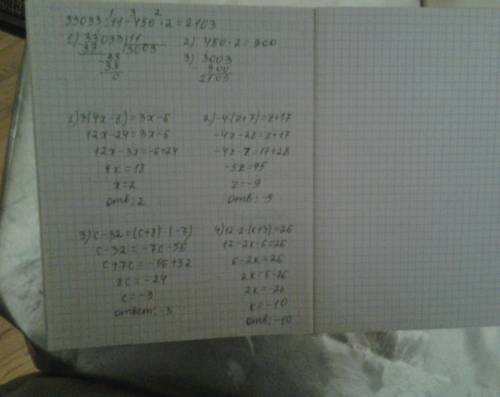 33033:11-450·2=2103
1 3 2
1) 33033|11
33 |3003
33
33
0
2) 450·2=900
3) 3003
900
2103
1) 3(4x-8)=3x-6
12x-24=3x-6
12x-3x=-6+24
9x=18
x=2
отв: 2
2) -4(z+7)=z+17
-4z-28=z+17
-4z-z=17+28
-5z=45
z=-9
отв: -9
3) c-32=(c+8)·(-7)
c-32=-7c-56
c+7c=-56+32
8c=-24
c=-3
ответ: -3
4) 12-2(k+3)=26
12-2k-6=26
6-2k=26
2k=6-26
2k=-20
k=-10
отв: -10